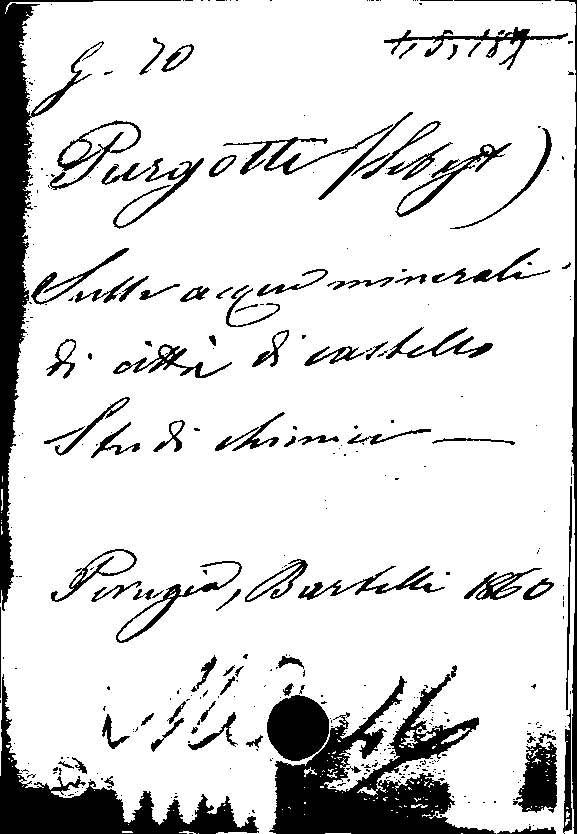 G. 70
Purgotti (Sebast)
Sulle acque minerali
di città di castello
Studi chimici —
Perugia, Bartelli 1860